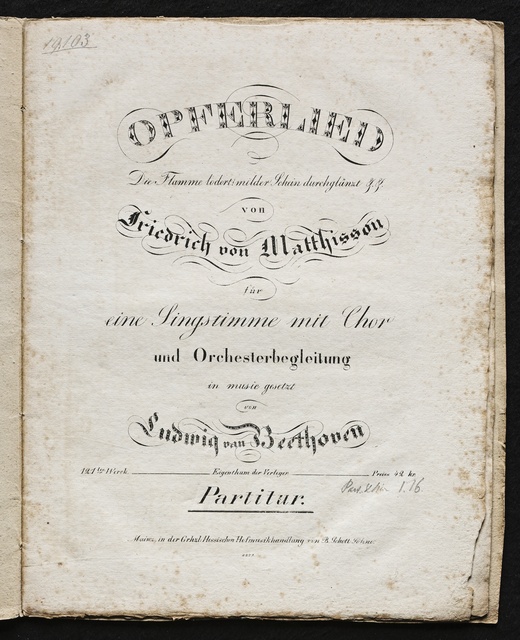 OPFERLIED
Die Flamme lodert, milder Schein durchglänzt
von
Friedrich von Matthisson
für
eine Singstimme mit Chor
und Orchesterbegleitung
in music gesetzt
von
Ludwig van Beethoven
121tes Werk. Eigenthum der Verleger. Preis 48 kr.
1.16
Partitur.
Mainz, in der Grhzl. Hessischen Hofmusikhandlung von B. Schott Söhne.